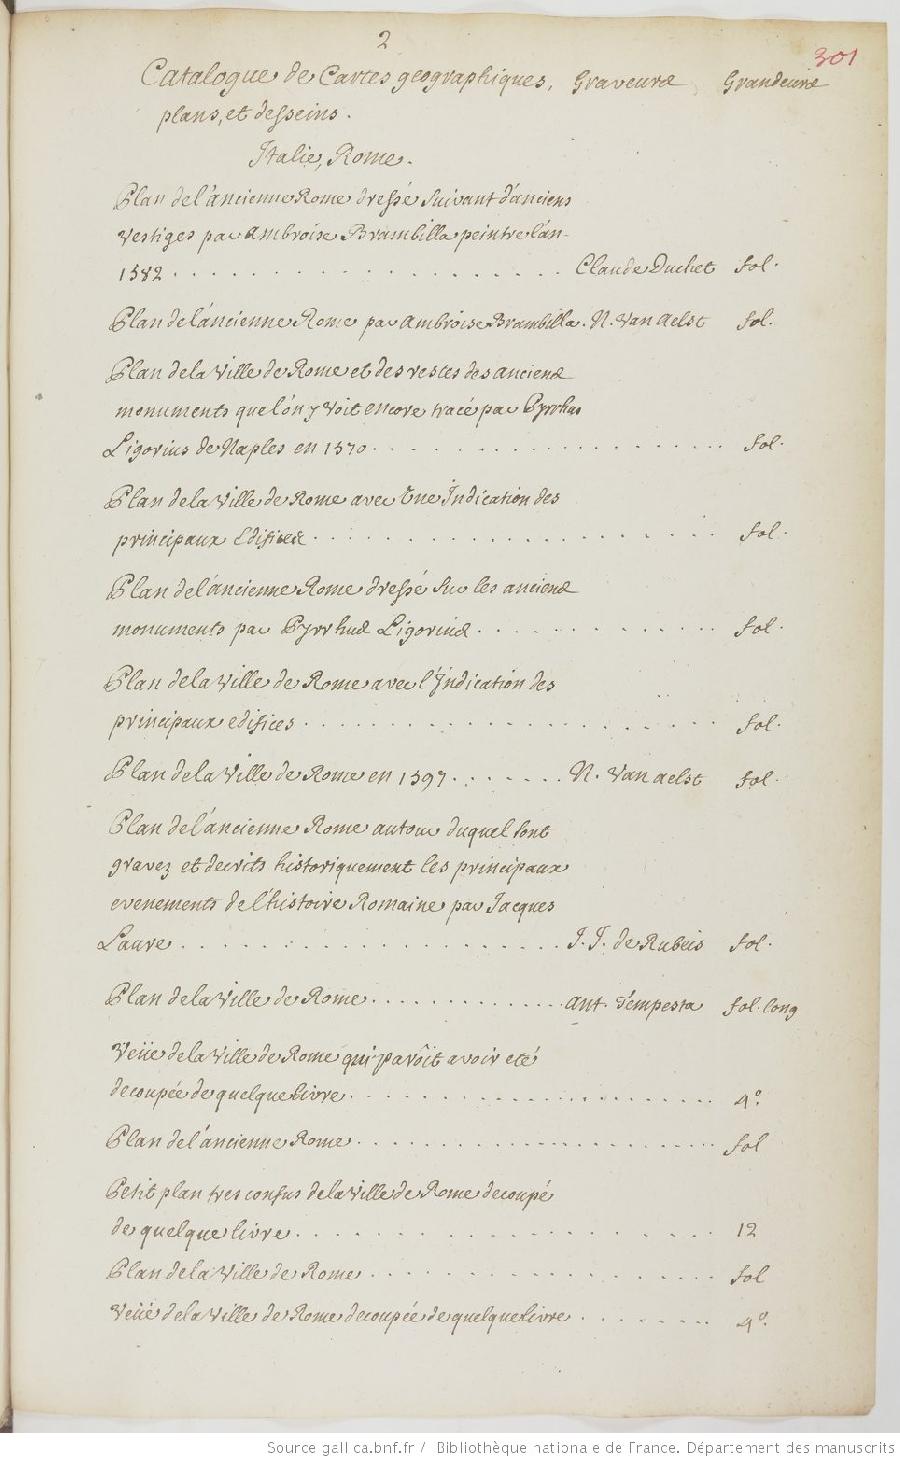 2
301
Catalogue de Cartes geographiques, Graveurs Grandeurs
plans, et desseins.
Italie, Rome.
Plan de l'ancienne Rome dressé suivant d'anciens
vestiges par Ambroise Brambilla peintre l'an
1582 . . . . . . . . . . . . . . . . . . . . Claude Duchet fol.
Plan de l'ancienne Rome par Ambroise Brambilla. N. Van Aelst fol.
Plan de la Ville de Rome et des restes des anciens
monuments que l'on y voit encore tracé par Pyrrhus
Ligorius de Naples en 1570 . . . . . . . . . . . . . . . fol.
Plan de la Ville de Rome avec Une Indication des
principaux Edifices . . . . . . . . . . . . . . . . . . fol.
Plan de l'ancienne Rome dressé sur les anciens
monuments par Pyrrhus Ligorius . . . . . . . . . . fol.
Plan de la Ville de Rome avec l'Indication des
principaux edifices . . . . . . . . . . . . . . . . . . fol.
Plan de la Ville de Rome en 1597 . . . . . . . N. Van aelst fol.
Plan de l'ancienne Rome autour duquel sont
gravez et decrits historiquement les principaux
evenements de l'histoire Romaine par Jacques
Laure . . . . . . . . . . . . . . . . . . . J. J. de Rubeis fol.
Plan de la Ville de Rome . . . . . . . . . . . . . ant. Tempesta fol. long
Veüe de la Ville de Rome qui paroît avoir eté
decoupée de quelque livre . . . . . . . . . . . . . . . . 4°.
Plan de l'ancienne Rome . . . . . . . . . . . . . . . . fol
Petit plan tres confus de la Ville de Rome decoupé
de quelque livre . . . . . . . . . . . . . . . . . . 12
Plan de la Ville de Rome . . . . . . . . . . . . . . . fol
Veüe de la Ville de Rome decoupée de quelque livre . . . . . . . . 4°.
Source gallica.bnf.fr / Bibliothèque nationale de France. Département des manuscrits